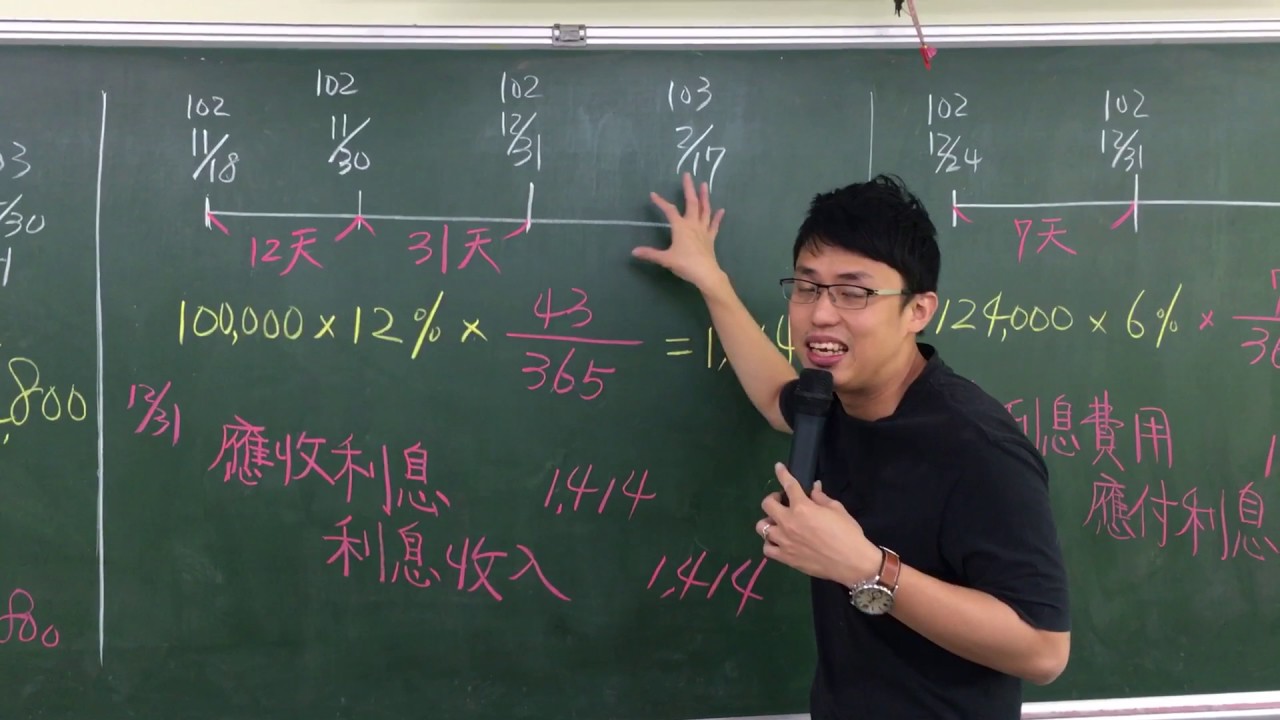 102
11/18
102
11/30
102
12/31
103
2/17
12天
31天
100,000 × 12% × 43/365 = 1,
12/31
應收利息 1,414
利息收入 1,414
102
12/24
102
12/31
7天
124,000 × 6% ×
利息費用
應付利息
800